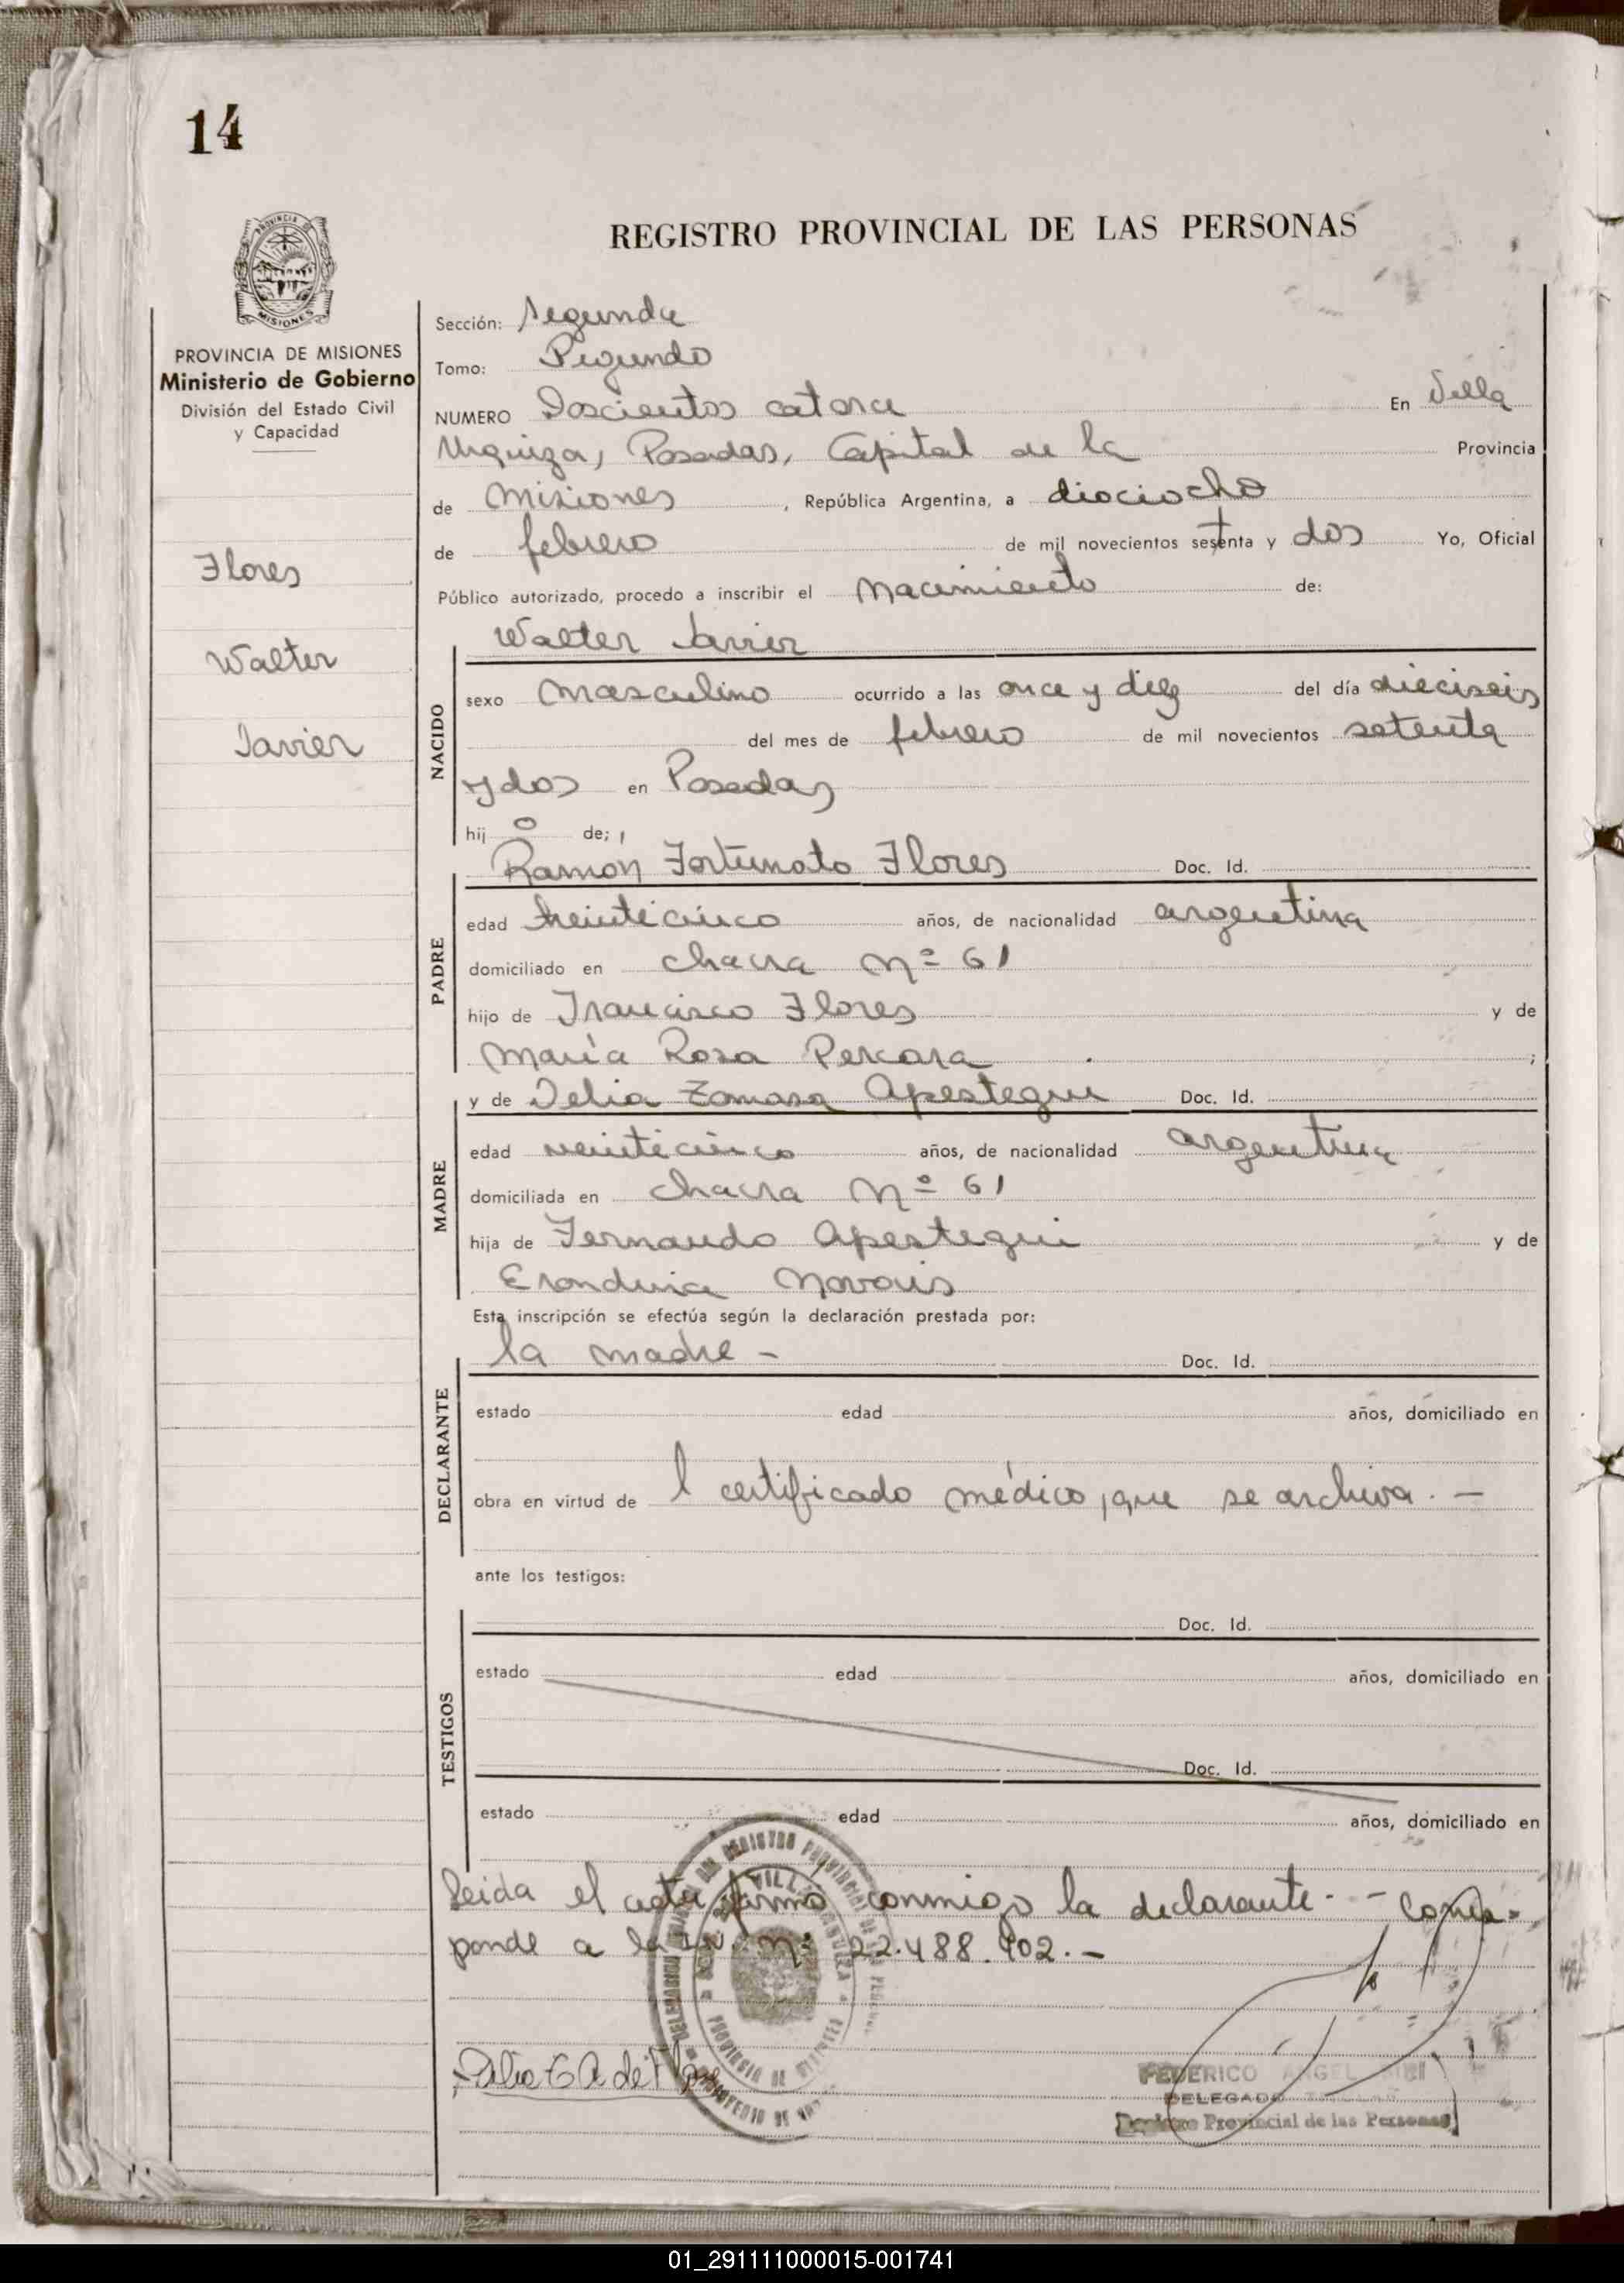 14
REGISTRO PROVINCIAL DE LAS PERSONAS
PROVINCIA
MISIONES
PROVINCIA DE MISIONES
Ministerio de Gobierno
División del Estado Civil
y Capacidad
Flores
Walter
Javier
Sección: Segunda
Tomo: Segundo
NUMERO Doscientos catorce En Villa
Urquiza, Posadas, Capital de la Provincia
de Misiones, República Argentina, a dieciocho
de febrero de mil novecientos sesenta y dos Yo, Oficial
Público autorizado, procedo a inscribir el Nacimiento de:
Walter Javier
NACIDO
sexo Masculino ocurrido a las once y diez del día dieciseis
del mes de febrero de mil novecientos setenta
y dos en Posadas
hijo de;
Ramon Fortunato Flores Doc. Id.
PADRE
edad treinticinco años, de nacionalidad argentina
domiciliado en chacra Nº 61
hijo de Francisco Flores y de
María Rosa ;
y de Delia Tomasa Apestegui Doc. Id.
MADRE
edad veinticinco años, de nacionalidad argentina
domiciliada en chacra Nº 61
hija de Fernando Apestegui y de
Esta inscripción se efectúa según la declaración prestada por:
la madre - Doc. Id.
DECLARANTE
estado edad años, domiciliado en
obra en virtud de l certificado médico, que se archiva. -
ante los testigos:
Doc. Id.
TESTIGOS
estado edad años, domiciliado en
Doc. Id.
estado edad años, domiciliado en
Leida el acta firmó conmigo la declarante. - Corres=
ponde a la nº 22.488.902. -
FEDERICO ANGEL
DELEGADO
Registro Provincial de las Personas
01_291111000015-001741